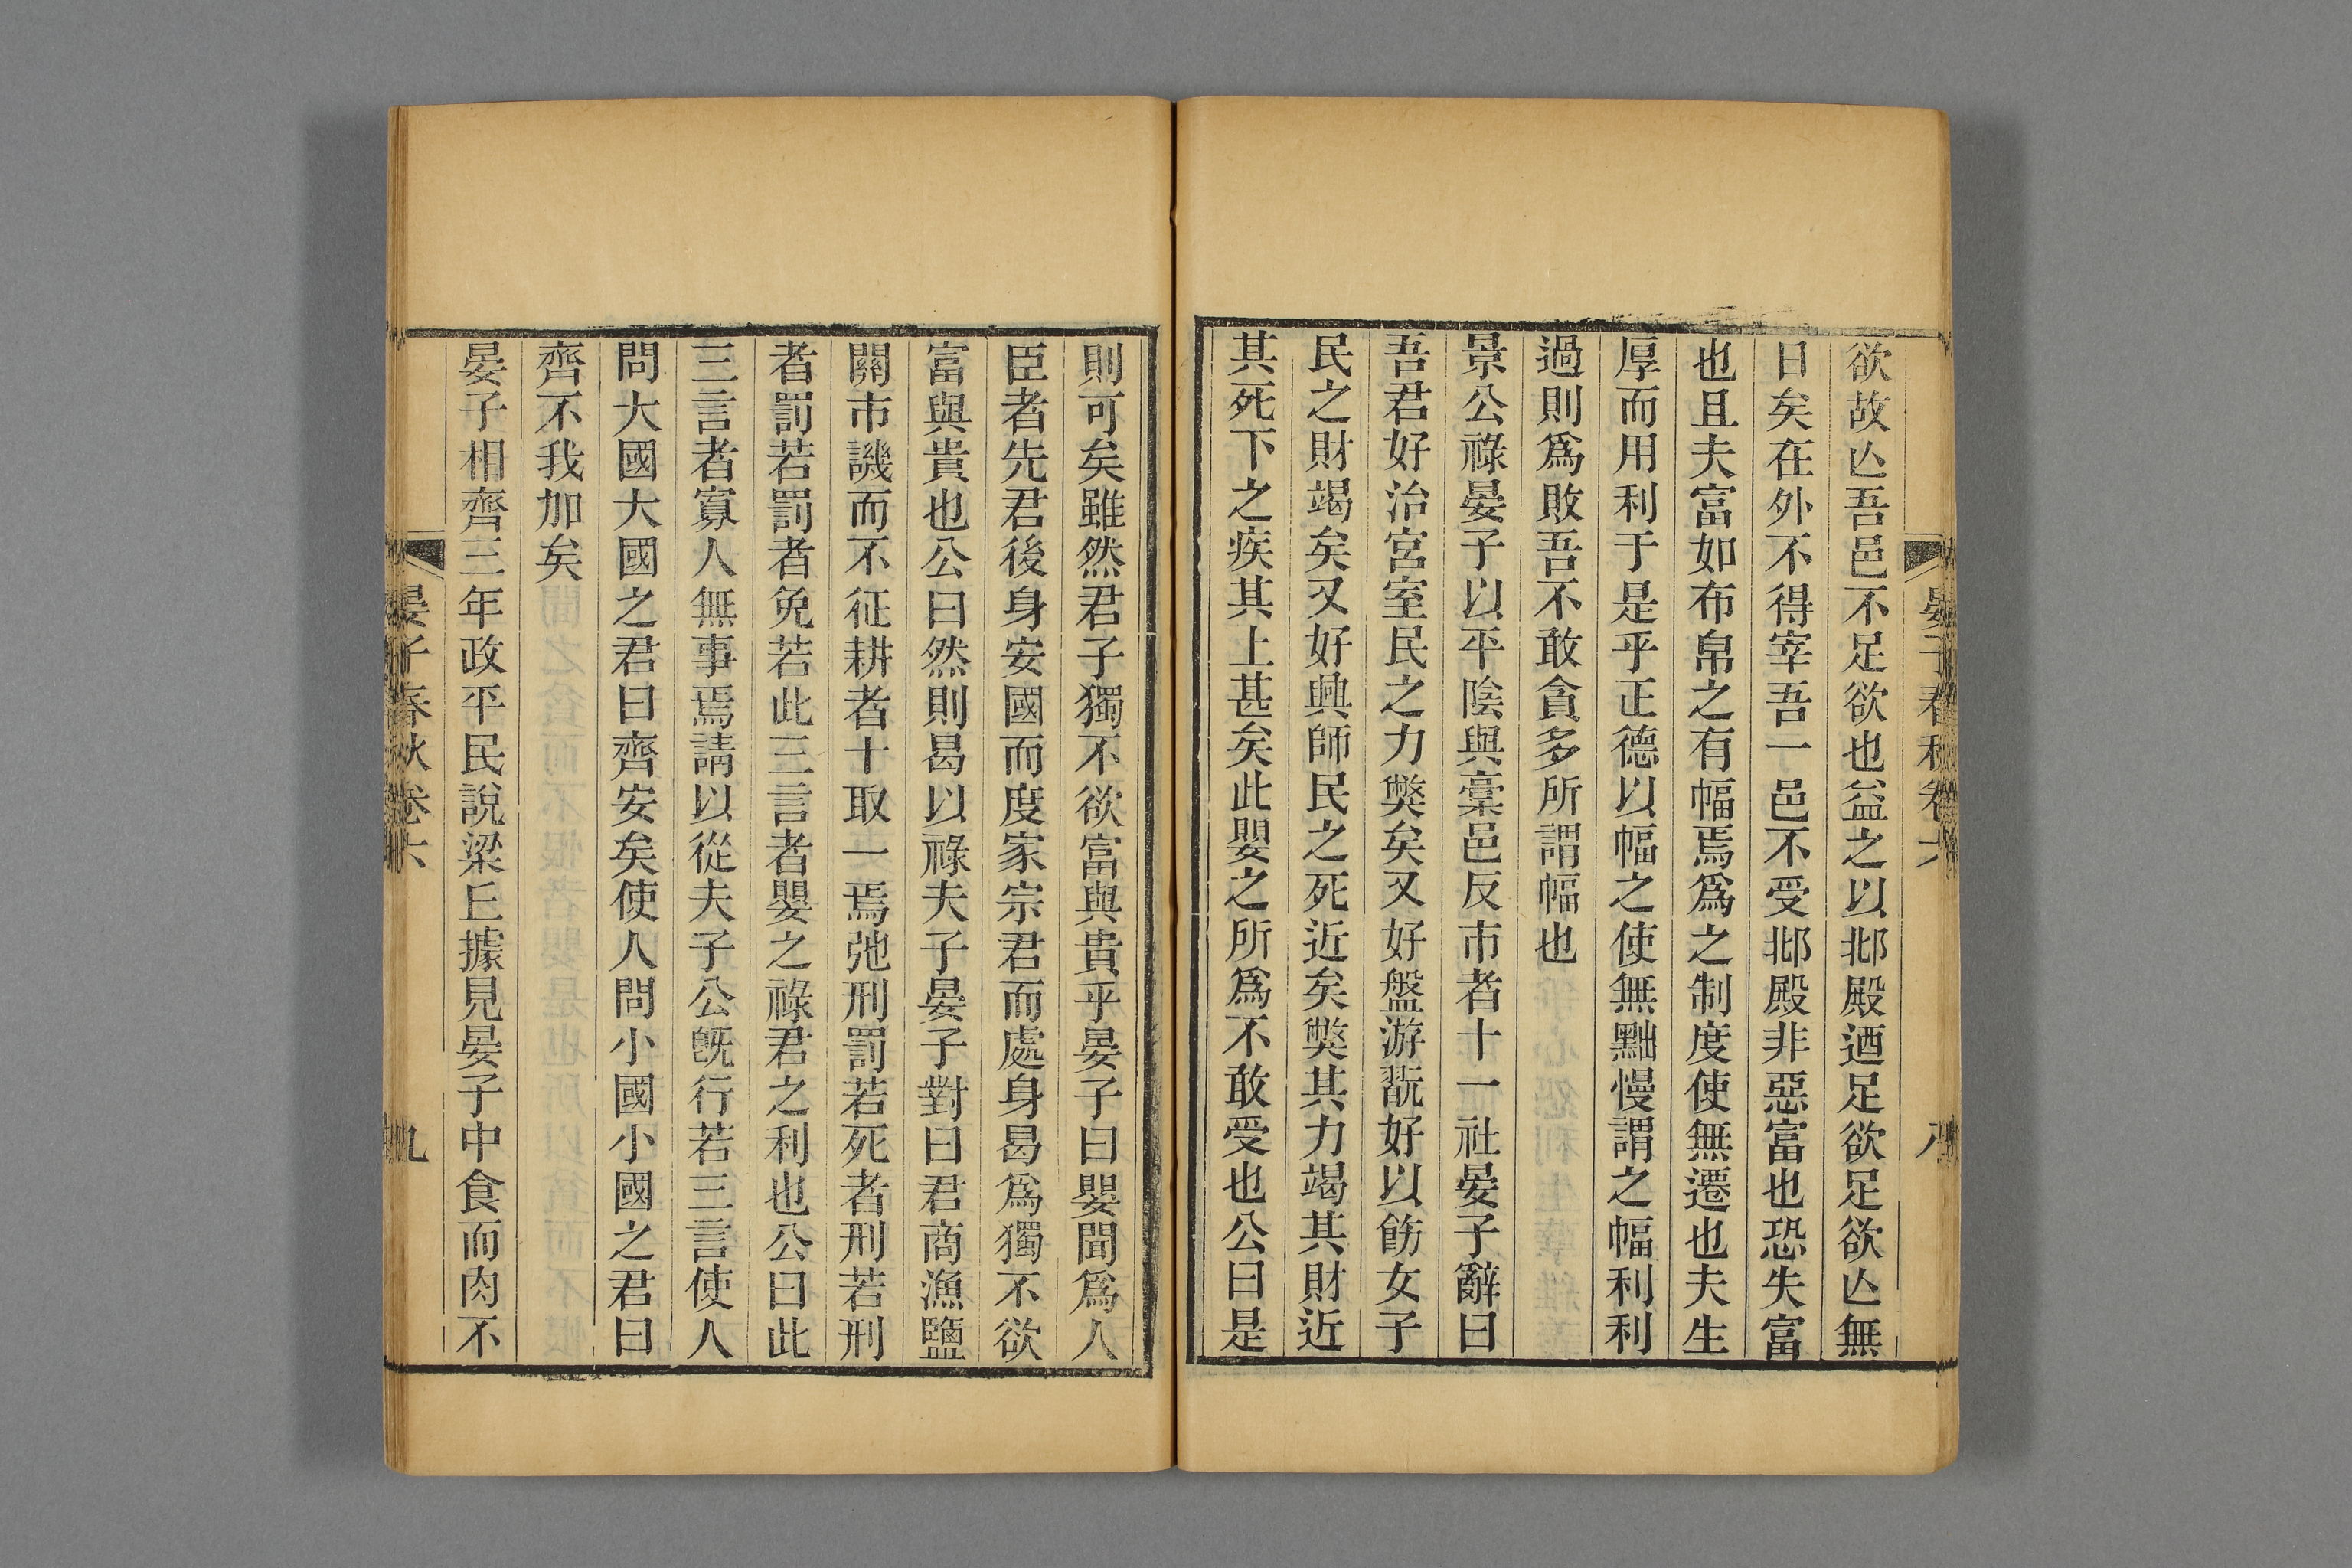 晏子春秋卷六
八
欲故亾吾邑不足欲也益之以邶殿迺足欲足欲亾無
日矣在外不得宰吾一邑不受邶殿非惡富也恐失富
也且夫富如布帛之有幅焉爲之制度使無遷也夫生
厚而用利于是乎正德以幅之使無黜慢謂之幅利利
過則爲敗吾不敢貪多所謂幅也
景公祿晏子以平陰與槀邑反市者十一社晏子辭曰
吾君好治宮室民之力獘矣又好盤游翫好以飭女子
民之財竭矣又好興師民之死近矣獘其力竭其財近
其死下之疾其上甚矣此嬰之所爲不敢受也公曰是
則可矣雖然君子獨不欲富與貴乎晏子曰嬰聞爲人
臣者先君後身安國而度家宗君而處身曷爲獨不欲
富與貴也公曰然則曷以祿夫子晏子對曰君商漁鹽
關市譏而不征耕者十取一焉弛刑罰若死者刑若刑
者罰若罰者免若此三言者嬰之祿君之利也公曰此
三言者寡人無事焉請以從夫子公旣行若三言使人
問大國大國之君曰齊安矣使人問小國小國之君曰
齊不我加矣
晏子相齊三年政平民說梁丘據見晏子中食而肉不
晏子春秋卷六
九